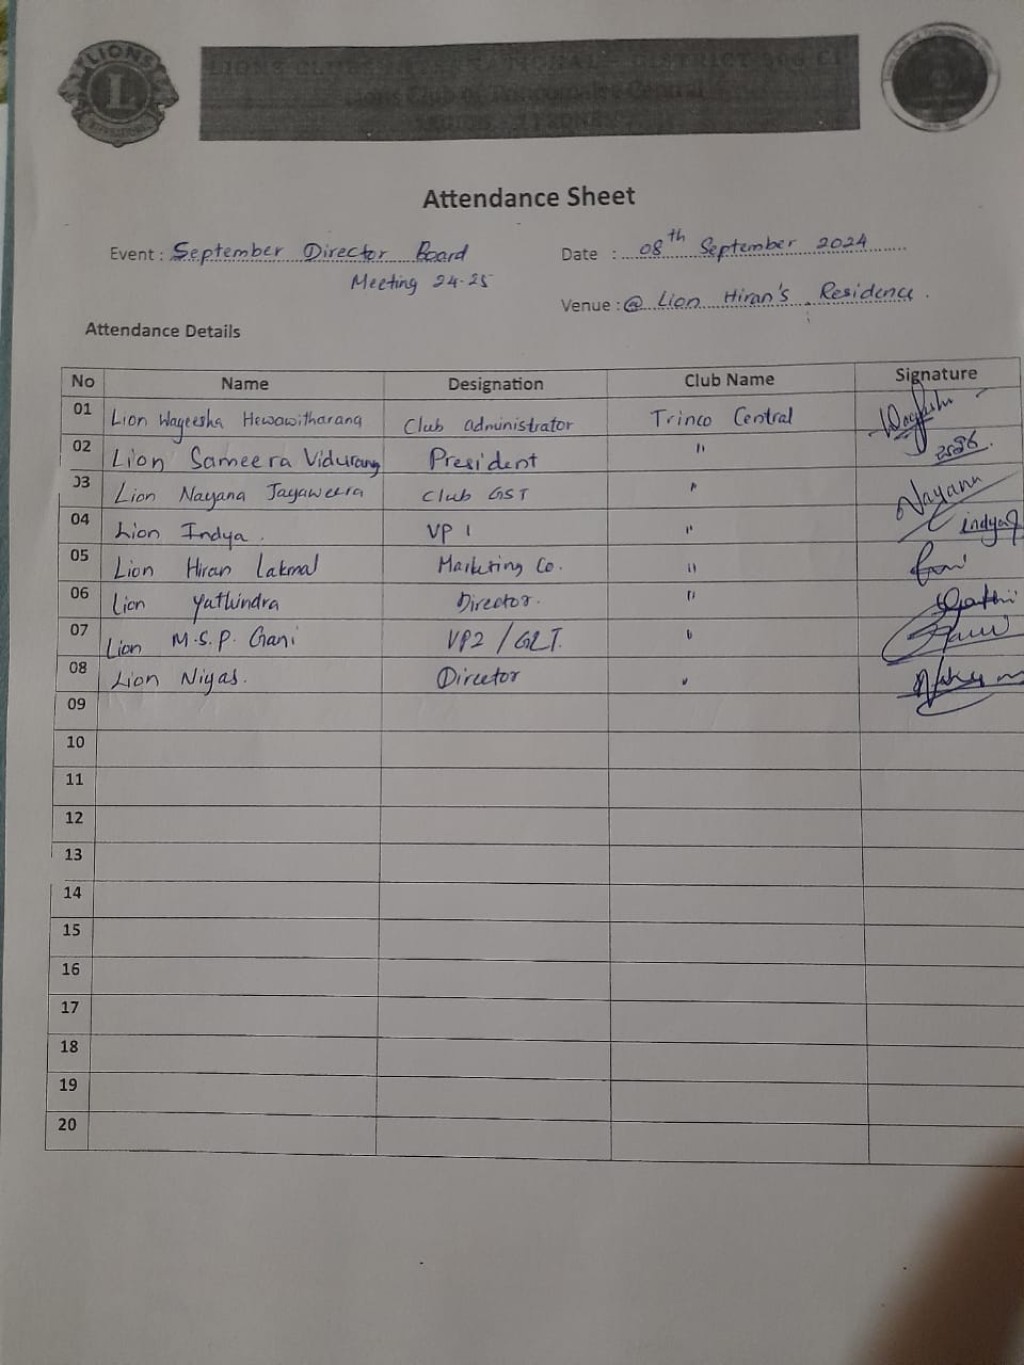 LIONS
L
INTERNATIONAL
LIONS CLUBS INTERNATIONAL - DISTRICT 306 C1
Lions Club of Trincomalee Central
REGION
Attendance Sheet
Event : September Director Board
Meeting 24-25
Date : 08th September 2024
Venue : @ Lion Hiran's Residence.
Attendance Details
No Name Designation Club Name Signature
01 Lion Wageesha Hewawitharana Club administrator Trinco Central
02 Lion Sameera Vidurang President "
03 Lion Nayana Jayaweera Club GST " Nayana
04 Lion Indya. VP 1 " indya
05 Lion Hiran Lakmal Marketing Co. "
06 Lion Yathindra Director. "
07 Lion M.S.P. Gani VP2 / GLT. "
08 Lion Niyas. Director "
09
10
11
12
13
14
15
16
17
18
19
20